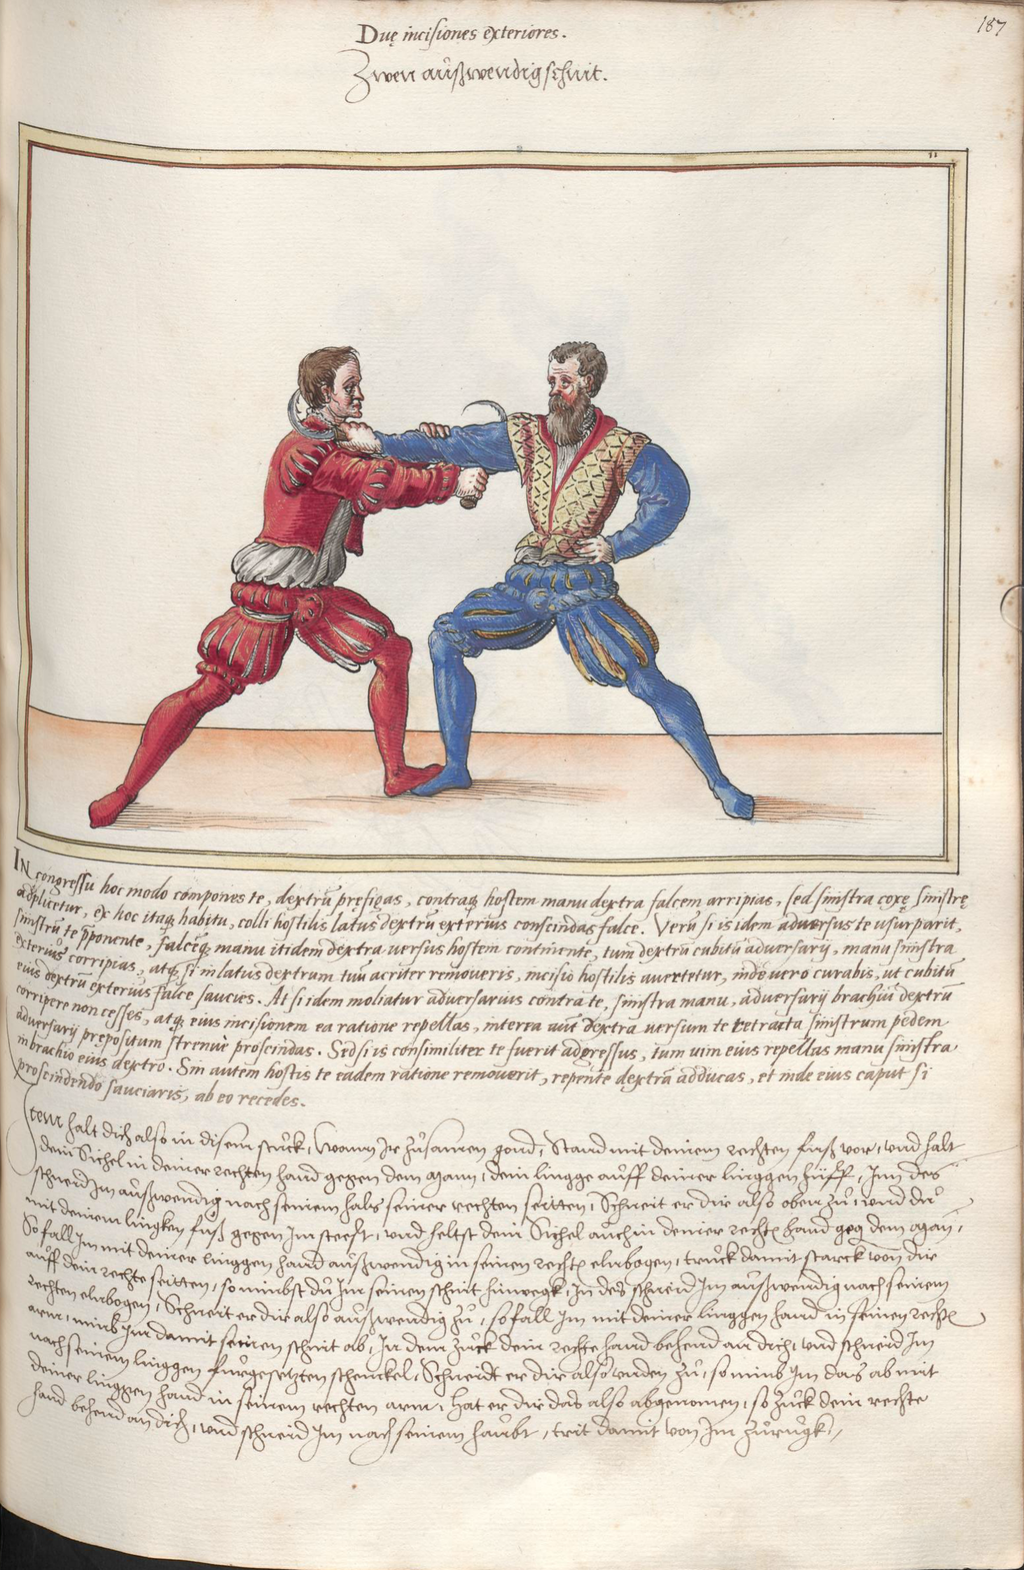 187
Duę incisiones exteriores.
Zwen außwendig schnit.
11
IN congressu hoc modo compones te, dextrũ prefigas, contraq̃ hostem manu dextra falcem arripias, sed sinistra coxę sinistrę
adplicetur, ex hoc itaq̃ habitu, colli hostilis latus dextrum exterius conscindas falce. Verũ si is idem adversus te usurparit,
sinistrũ te p̃ponente, falcẽq̃ manu itidem dextra versus hostem continente, tum dextrũ cubitũ adversarij, manu sinistra
exterius corripias, atq̃ si in latus dextrum tuũ acriter removeris, incisio hostilis avertetur, inde vero curabis, ut cubitũ
eius dextrũ exterius falce saucies. At si idem moliatur adversarius contra te, sinistra manu, adversarij brachiũ dextrũ
corripere non cesses, atq̃ eius incisionem ea ratione repellas, interea aũt dextra versum te retracta sinistrum pedem
adversarij prepositum strenuè proscindas. Sed si is consimiliter te fuerit adgressus, tum vim eius repellas manu sinistra
in brachio eius dextro. Sin autem hostis te eadem ratione removerit, repente dextrã adducas, et inde eius caput si
proscindendo sauciaris, ab eo recedes.
Item halt dich also in disem stuck, Wann Ir zusamen gond, Stand mit deinem rechten fuß vor, und halt
dein Sichel in deiner rechten hand gegen dem Mann, dein lingge auff deiner linggen hüff, Inn des
schneid Im außwendig nach seinem hals seiner rechten seitten, Schneit er dir also oben zu, und du
mit deinem lingken fuß gegen Im steest, und heltst dein Sichel auch in deiner recht̃ hand geg̃ dem Man,
So fall Im mit deiner linggen hand außwendig in seinen recht̃ elnbogen, truck damit starck von dir
auff dein rechte seitten, so nimbst du Im seinen schnit hinwegk, In des schneid Im außwendig nach seinem
rechten elnbogen, Schneit er dir also außwendig zu, so fall Im mit deiner linggen hand in seinen recht̃
arm, nimb Im damit seinen schnit ab, In dem zuck dein rechte hand behend an dich, und schneid Im
nach seinem linggen fürgesetzten schenckel, Schneidt er dir also unden zu, so nimb Im das ab mit
deiner linggen hand in seinem rechten arm, Hat er dir das also abgenomen, so zuck dein rechte
hand behend an dich, und schneid Im nach seinem haubt, trit damit von Im zurugk,